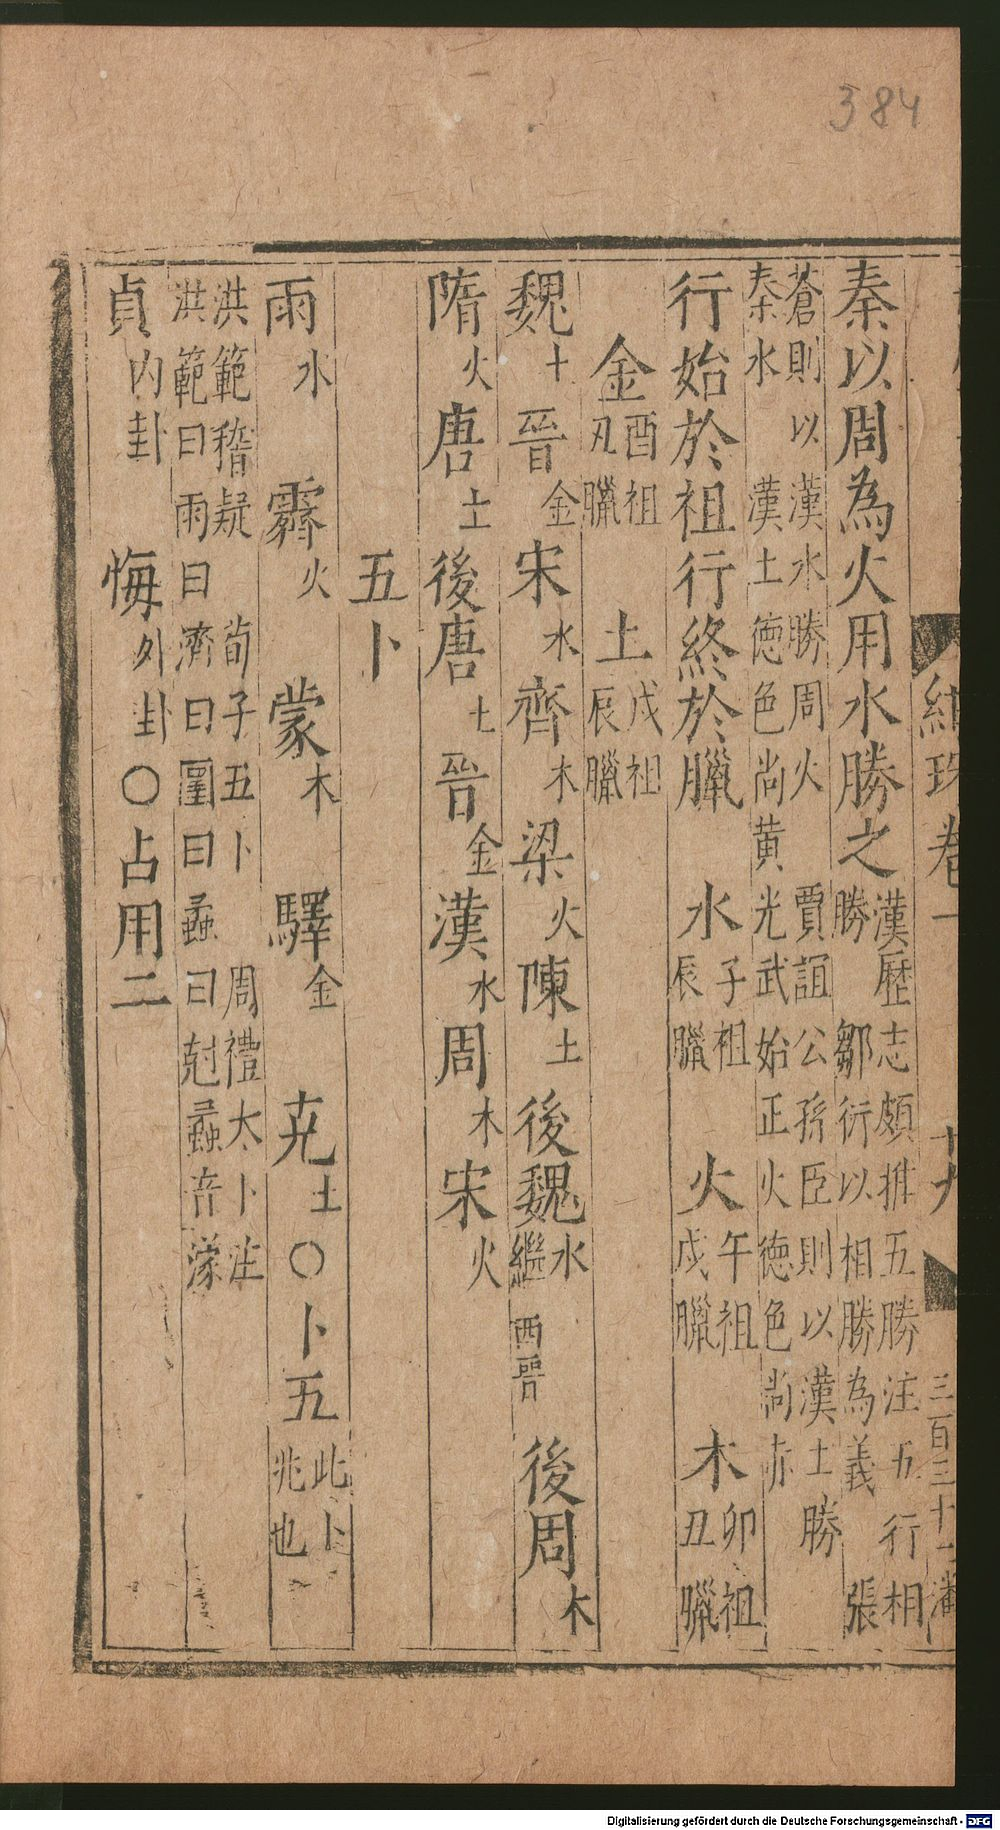 384
紺珠卷一 十九 三百三十二
秦以周為火用水勝之
漢歷志頗推五勝注五行相
勝 鄒衍以相勝為義 張
蒼則以漢水勝周火 賈誼公孫臣則以漢土勝
秦水 漢土徳色尚黄光武始正火徳色尚赤
行始於祖行終於臘 水 子祖 辰臘 火 午祖 戍臘 木 卯祖 丑臘
金 酉祖 丑臘 土 戊祖 辰臘
魏 土 晉 金 宋 水 齊 木 梁 火 陳 土 後魏 水 繼西晉 後周 木
隋 火 唐 土 後唐 土 晉 金 漢 水 周 木 宋 火
五卜
雨 水 霽 火 蒙 木 驛 金 克 土 〇卜五 此卜兆也
洪範稽疑 荀子五卜 周禮大卜注
洪範曰雨曰濟曰圛曰蟊曰尅蟊音濛
貞 内卦 悔 外卦 〇占用二
Digitalisierung gefördert durch die Deutsche Forschungsgemeinschaft - DFG